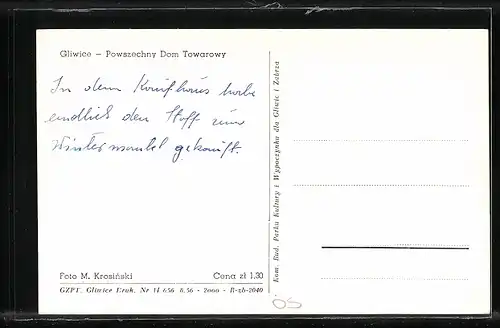 Gliwice – Powszechny Dom Towarowy
In dem Kaufhaus habe
endlich den Stoff zum
Wintermantel gekauft.
Foto M. Krosiński
Cena zł 1,30
GZPT. Gliwice Druk. Nr 11 656 8.56 - 2000 - R-zb-2040
Kom. Bud. Parku Kultury i Wypoczynku dla Gliwic i Zabrza